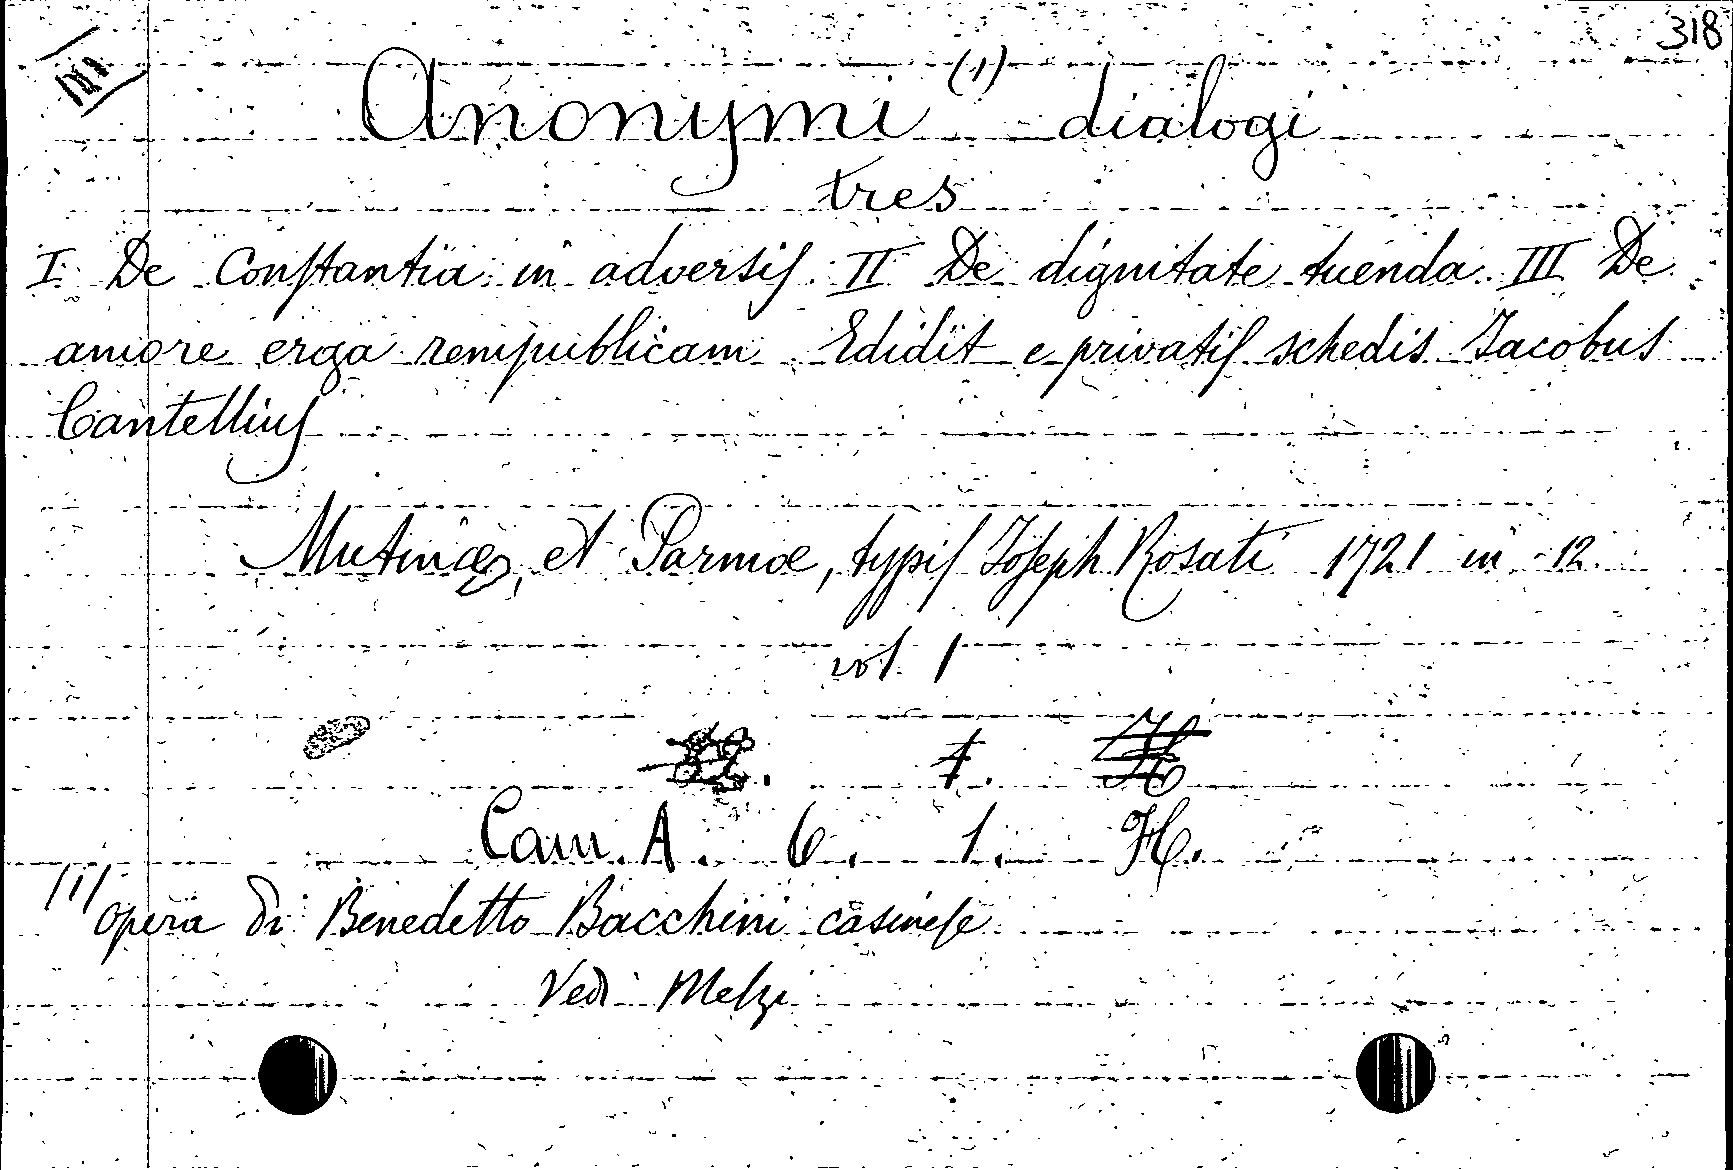 318
III
Anonymi (1) dialogi
tres
I. De Constantia in adversis. II De dignitate tuenda. III De
amore erga rempublicam. Edidit e privatis schedis Jacobus
Cantellius
Mutinae, et Parmae, typis Joseph Rosati 1721 in 12.
vol. 1
1.
Cam. A. 6. 1. H.
(1) opera di Benedetto Bacchini casinese
Vedi Melzi